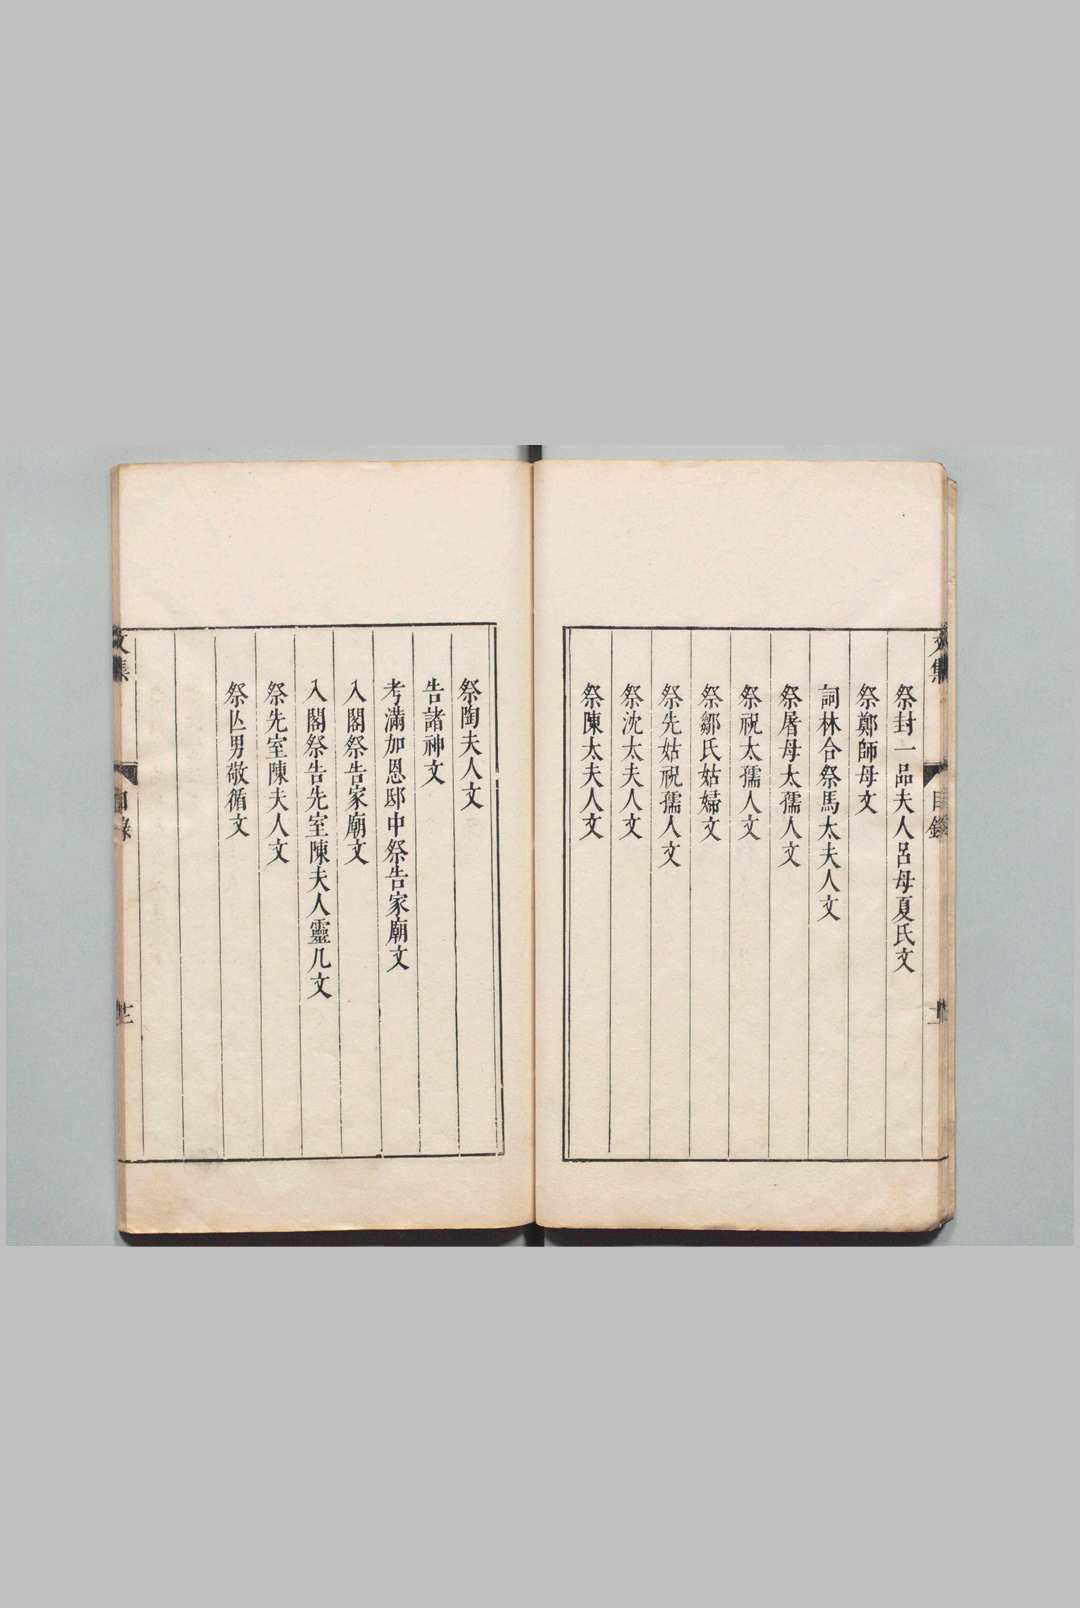 文集
目錄
祭封一品夫人呂母夏氏文
祭鄭師母文
詞林合祭馬太夫人文
祭屠母太孺人文
祭祝太孺人文
祭鄒氏姑婦文
祭先姑祝孺人文
祭沈太夫人文
祭陳太夫人文
祭陶夫人文
告諸神文
考滿加恩邸中祭告家廟文
入閣祭告家廟文
入閣祭告先室陳夫人靈几文
祭先室陳夫人文
祭亾男敬循文
文集
目錄